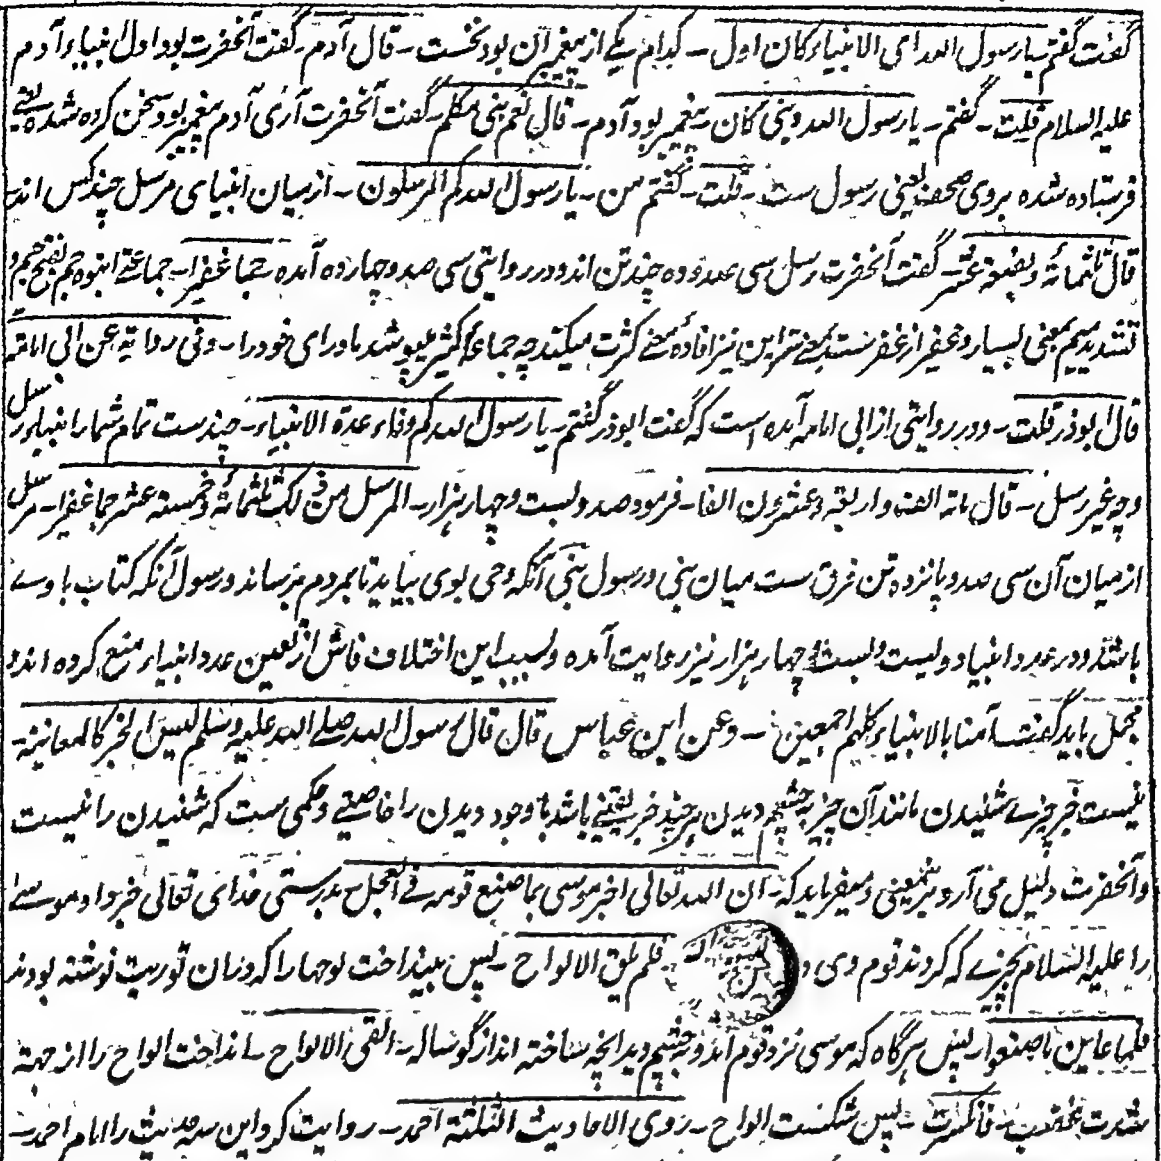 گفت گفتم یا رسول الله ای الانبیاء کان اول ـ کدام یکے از پیغمبران بود نخست ـ قال آدم ـ گفت آنحضرت بود اول انبیاء آدم
علیه السلام قلت ـ گفتم ـ یا رسول الله و نبی کان ـ پیغمبر بود آدم ـ قال نعم نبی مکلم ـ گفت آنحضرت آری آدم پیغمبر بود سخن کرده شده یعنے
فرستاده شده بروی صحف یعنی رسول ست ـ قلت ـ گفتم من ـ یا رسول الله کم المرسلون ـ از میان انبیای مرسل چند کس اند
قال ثلثمائة و بضعة عشر ـ گفت آنحضرت رسل سی صد و ده چند تن اند و در روایتی سی صد و چهارده آمده ـ جما غفیرا ـ جماعتے انبوه جم بفتح جیم و
تشدید میم بمعنی بسیار و غفیر از غفرست بمعنے ستر این نیز افاده معنے کثرت میکند چه جماعة کثیر میپوشد ماورای خود را ـ وفی روایة عن ابی امامة
قال ابوذر قلت ـ و در روایتی از ابی امامه آمده است که گفت ابوذر گفتم ـ یا رسول الله کم وفاء عدة الانبیاء ـ چندست تمام شمار انبیاء رسل
و چه غیر رسل ـ قال مائة الف و اربعة و عشرون الفا ـ فرمود صد و بست و چهار هزار ـ الرسل من ذلک ثلثمائة و خمسة عشر جما غفیرا ـ مرسل
از میان آن سی صد و پانزده تن فرق ست میان نبی و رسول نبی آنکه وحی بوی بیاید تا بمردم برساند و رسول آنکه کتاب با وے
باشد و در عدد انبیا دولیست و بست و چهار هزار نیز روایت آمده و بسبب این اختلاف فاش از تعیین عدد انبیاء منع کرده اند و
مجمل باید گفت آمنا بالانبیاء کلهم اجمعین ـ وعن ابن عباس قال قال رسول الله صلے الله علیه وسلم لیس الخبر کالمعاینة ـ
نیست خبر چیزے شنیدن مانند آن چیز بچشم دیدن هر چند خبر یقینے باشد با وجود دیدن را خاصیتے و حکمی ست که شنیدن را نیست
و آنحضرت دلیل می آرد برین معنی و میفرماید که ـ ان الله تعالی اخبر موسی بما صنع قومه فے العجل ـ بدرستی خدای تعالی خبر داد موسے
را علیه السلام بچیزے که کردند قوم وی فلم یلق الالواح ـ پس بینداخت لوحها را که در آن توریت نوشته بودند
فلما عاین ما صنعوا ـ پس هرگاه که موسی نزد قوم آمد و بچشم دید آنچه ساخته اند از گوساله ـ القی الالواح ـ انداخت الواح را از جهة
شدت غضب ـ فانکسرت ـ پس شکست الواح ـ روی الاحادیث الثلثة احمد ـ روایت کرد این سه حدیث را امام احمد ـ